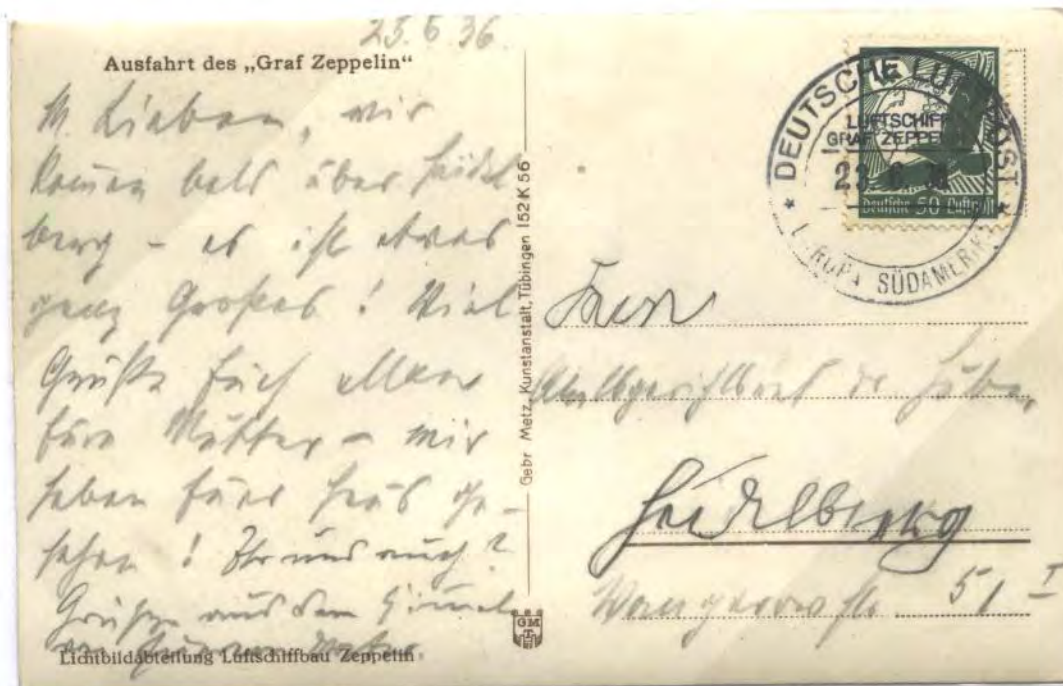 23.6.36
Ausfahrt des „Graf Zeppelin“
M. Lieben, wir
komen bald über Heidel
berg – es ist etwas
ganz Großes! Viel
Grüße Euch allen
Eure Mutter – wir
haben Euer Haus ge-
sehen! Ihr uns auch?
Grüße aus dem Himel
Lichtbildabteilung Luftschiffbau Zeppelin
Gebr Metz, Kunstanstalt, Tübingen 152 K 56
GMT
DEUTSCHE LUFTPOST
LUFTSCHIFF
GRAF ZEPPELIN
23. 6. 36
EUROPA SÜDAMERIKA
Deutsche 50 Luftpost
Herrn
Amtsgerichtsrat Dr.
Heidelberg
51 I